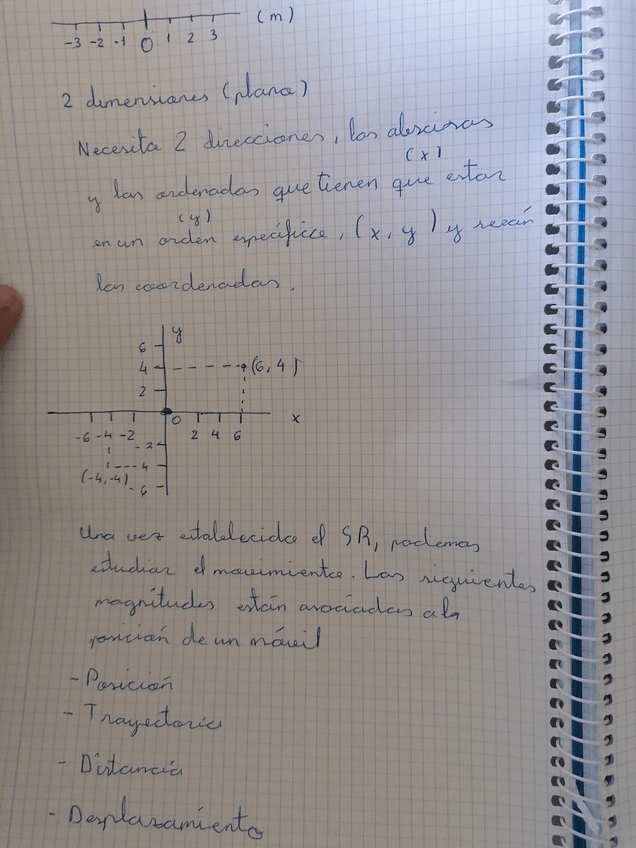 (m)
-3 -2 -1 0 1 2 3
2 dimensiones (plano)
Necesita 2 direcciones, las abscisas
(x)
y las ordenadas que tienen que estar
(y)
en un orden específico, (x, y) y serán
las coordenadas.
y
6
4 (6, 4)
2
0 x
-6 -4 -2 2 4 6
-2
-4
(-4,-4)
-6
Una vez establecido el SR, podemos
estudiar el movimiento. Las siguientes
magnitudes están asociadas a la
posición de un móvil
- Posición
- Trayectoria
- Distancia
- Desplazamiento